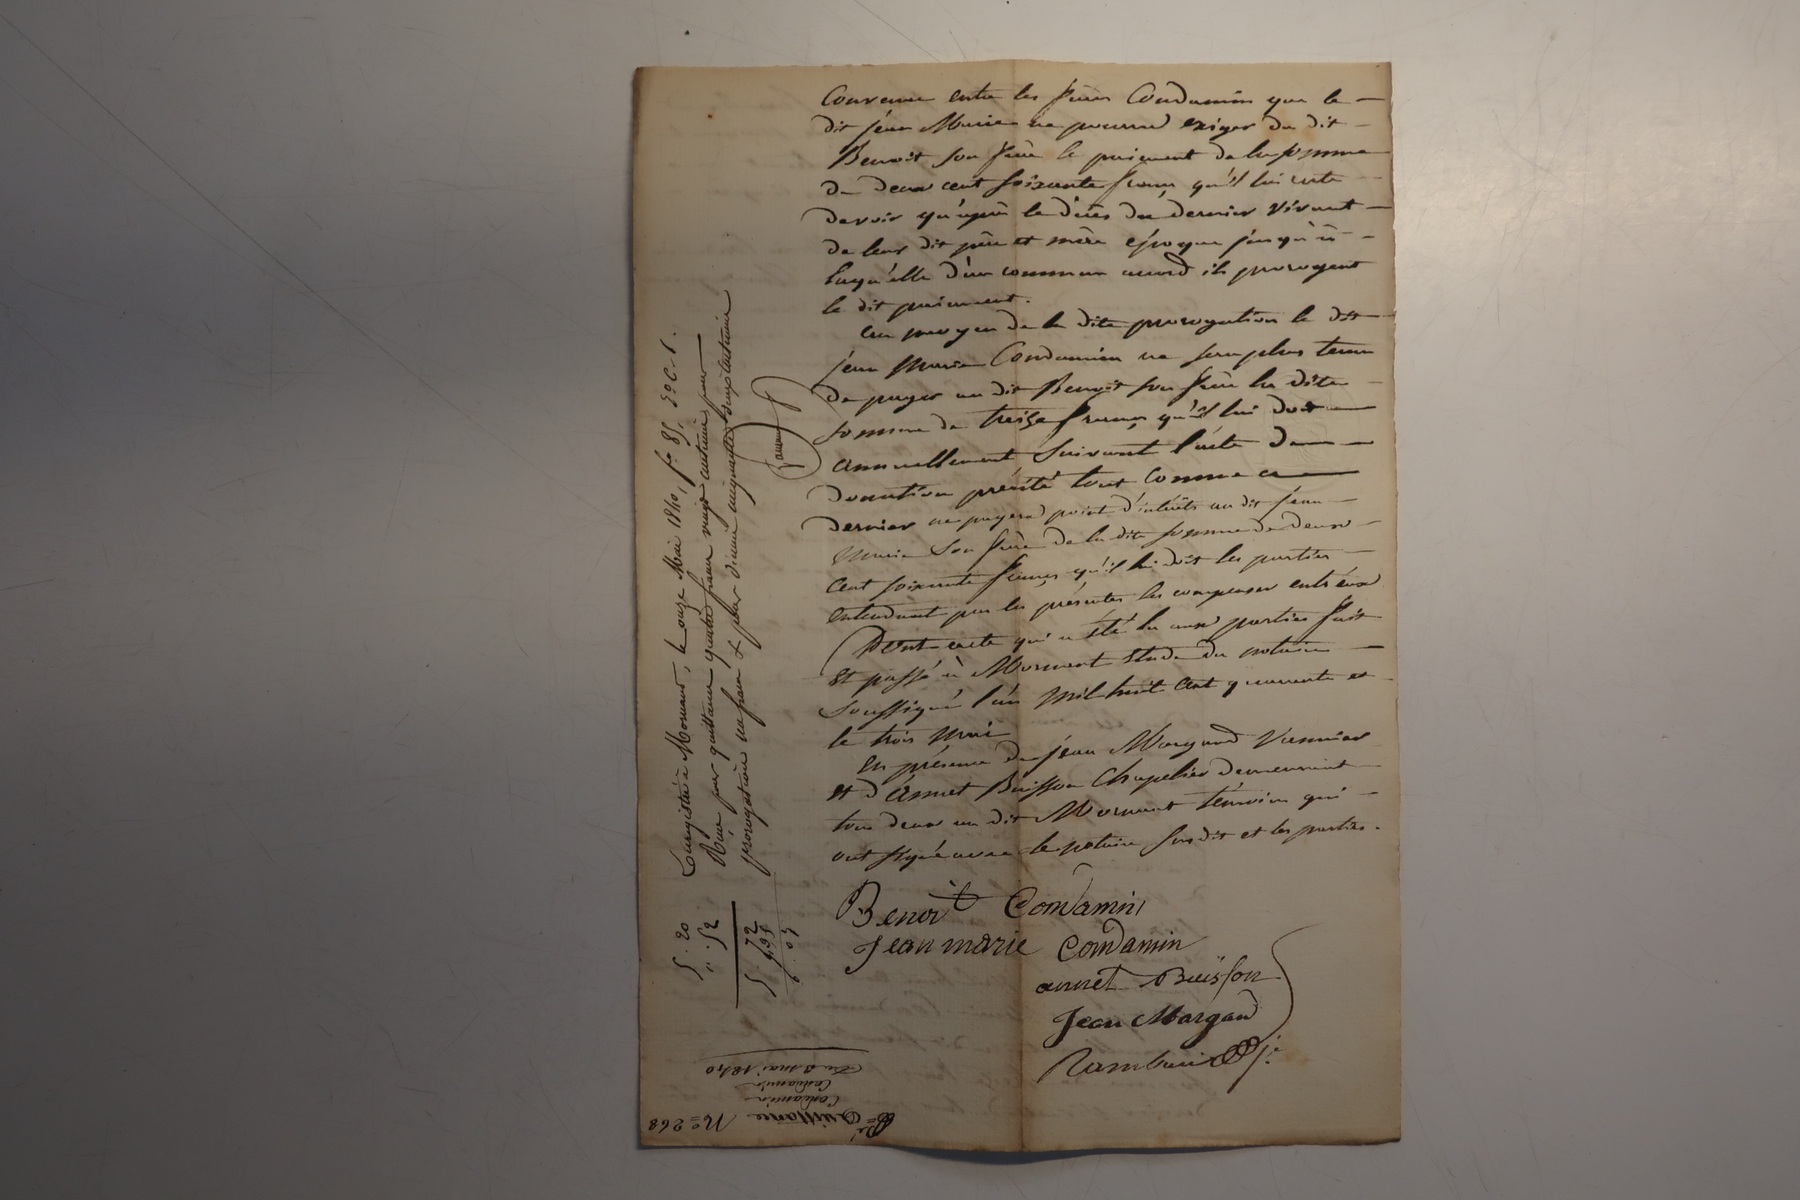 Convenu entre les frères Condamin que le
dit jean Marie ne pourra exiger du dit
Benoit son frère le paiement de la somme
de deux cent soixante francs qu'il lui reste
devoir qu'après le décès du dernier vivant
de leur dit père et mère époque jusqu'à
laqu'elle d'un commun accord ils prorogent
le dit paiement.
Au moyen de la dite prorogation le dit
jean Marie Condamin ne sera plus tenu
de payer au dit Benoit son frère la dite
somme de treize francs qu'il lui doit
annuellement suivant l'acte de
donation précité tout comme ce
dernier ne payera point d'intérêts au dit jean
Marie son frère de la dite somme de deux
cent soixante francs qu'il lui doit les parties
entendant par les présentes les compenser entr'eux
Dont acte qui a été lu aux parties fait
et passé à Mornant étude du notaire
soussigné l'an mil huit cent quarante et
le trois Mai
En présence de jean Margand
et d'Annet Buisson Chapelier demeurant
tous deux au dit Mornant témoins qui
ont signé avec le notaire susdit et les parties.
Benoit Condamin
Jean marie Condamin
annet Buisson
Jean Margand
Enregistré à Mornant, le onze Mai 1840, f° 85, v° c. 1.
Reçu pour quittance quatre francs vingt centimes pour
prorogation un franc & pour dixième cinquante deux centimes
5. 20
". 52
5. 72
6. 03
N° 268
Quittance
Condamin
Condamin
Du 3 mai 1840